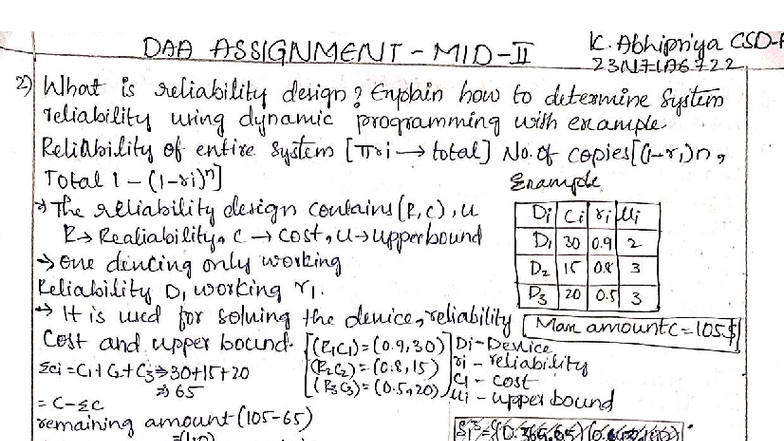 DAA ASSIGNMENT - MID-II
K. Abhipriya CSD-
23N71A6722
2) What is reliability design? Explain how to determine System
reliability using dynamic programming with example.
Reliability of entire System [πri → total] No. of copies [(1-ri)n,
Total 1-(1-ri)^n]
Example
→ The reliability design contains (R, C), u
R → Realiability, C → cost, u → upperbound
→ one dencing only working
Reliability D1 working r1.
Di Ci ri ui
D1 30 0.9 2
D2 15 0.8 3
D3 20 0.5 3
→ It is used for solving the device, reliability
Cost and upper bound.
Max amount C = 105$
[(R1C1) = (0.9, 30)
(R2C2) = (0.8, 15)
(R3C3) = (0.5, 20)]
Di - Device
ri - reliability
Ci - cost
ui - upper bound
Σci = C1 + C2 + C3 ⇒ 30+15+20
⇒ 65
= C - Σc
remaining amount (105-65)